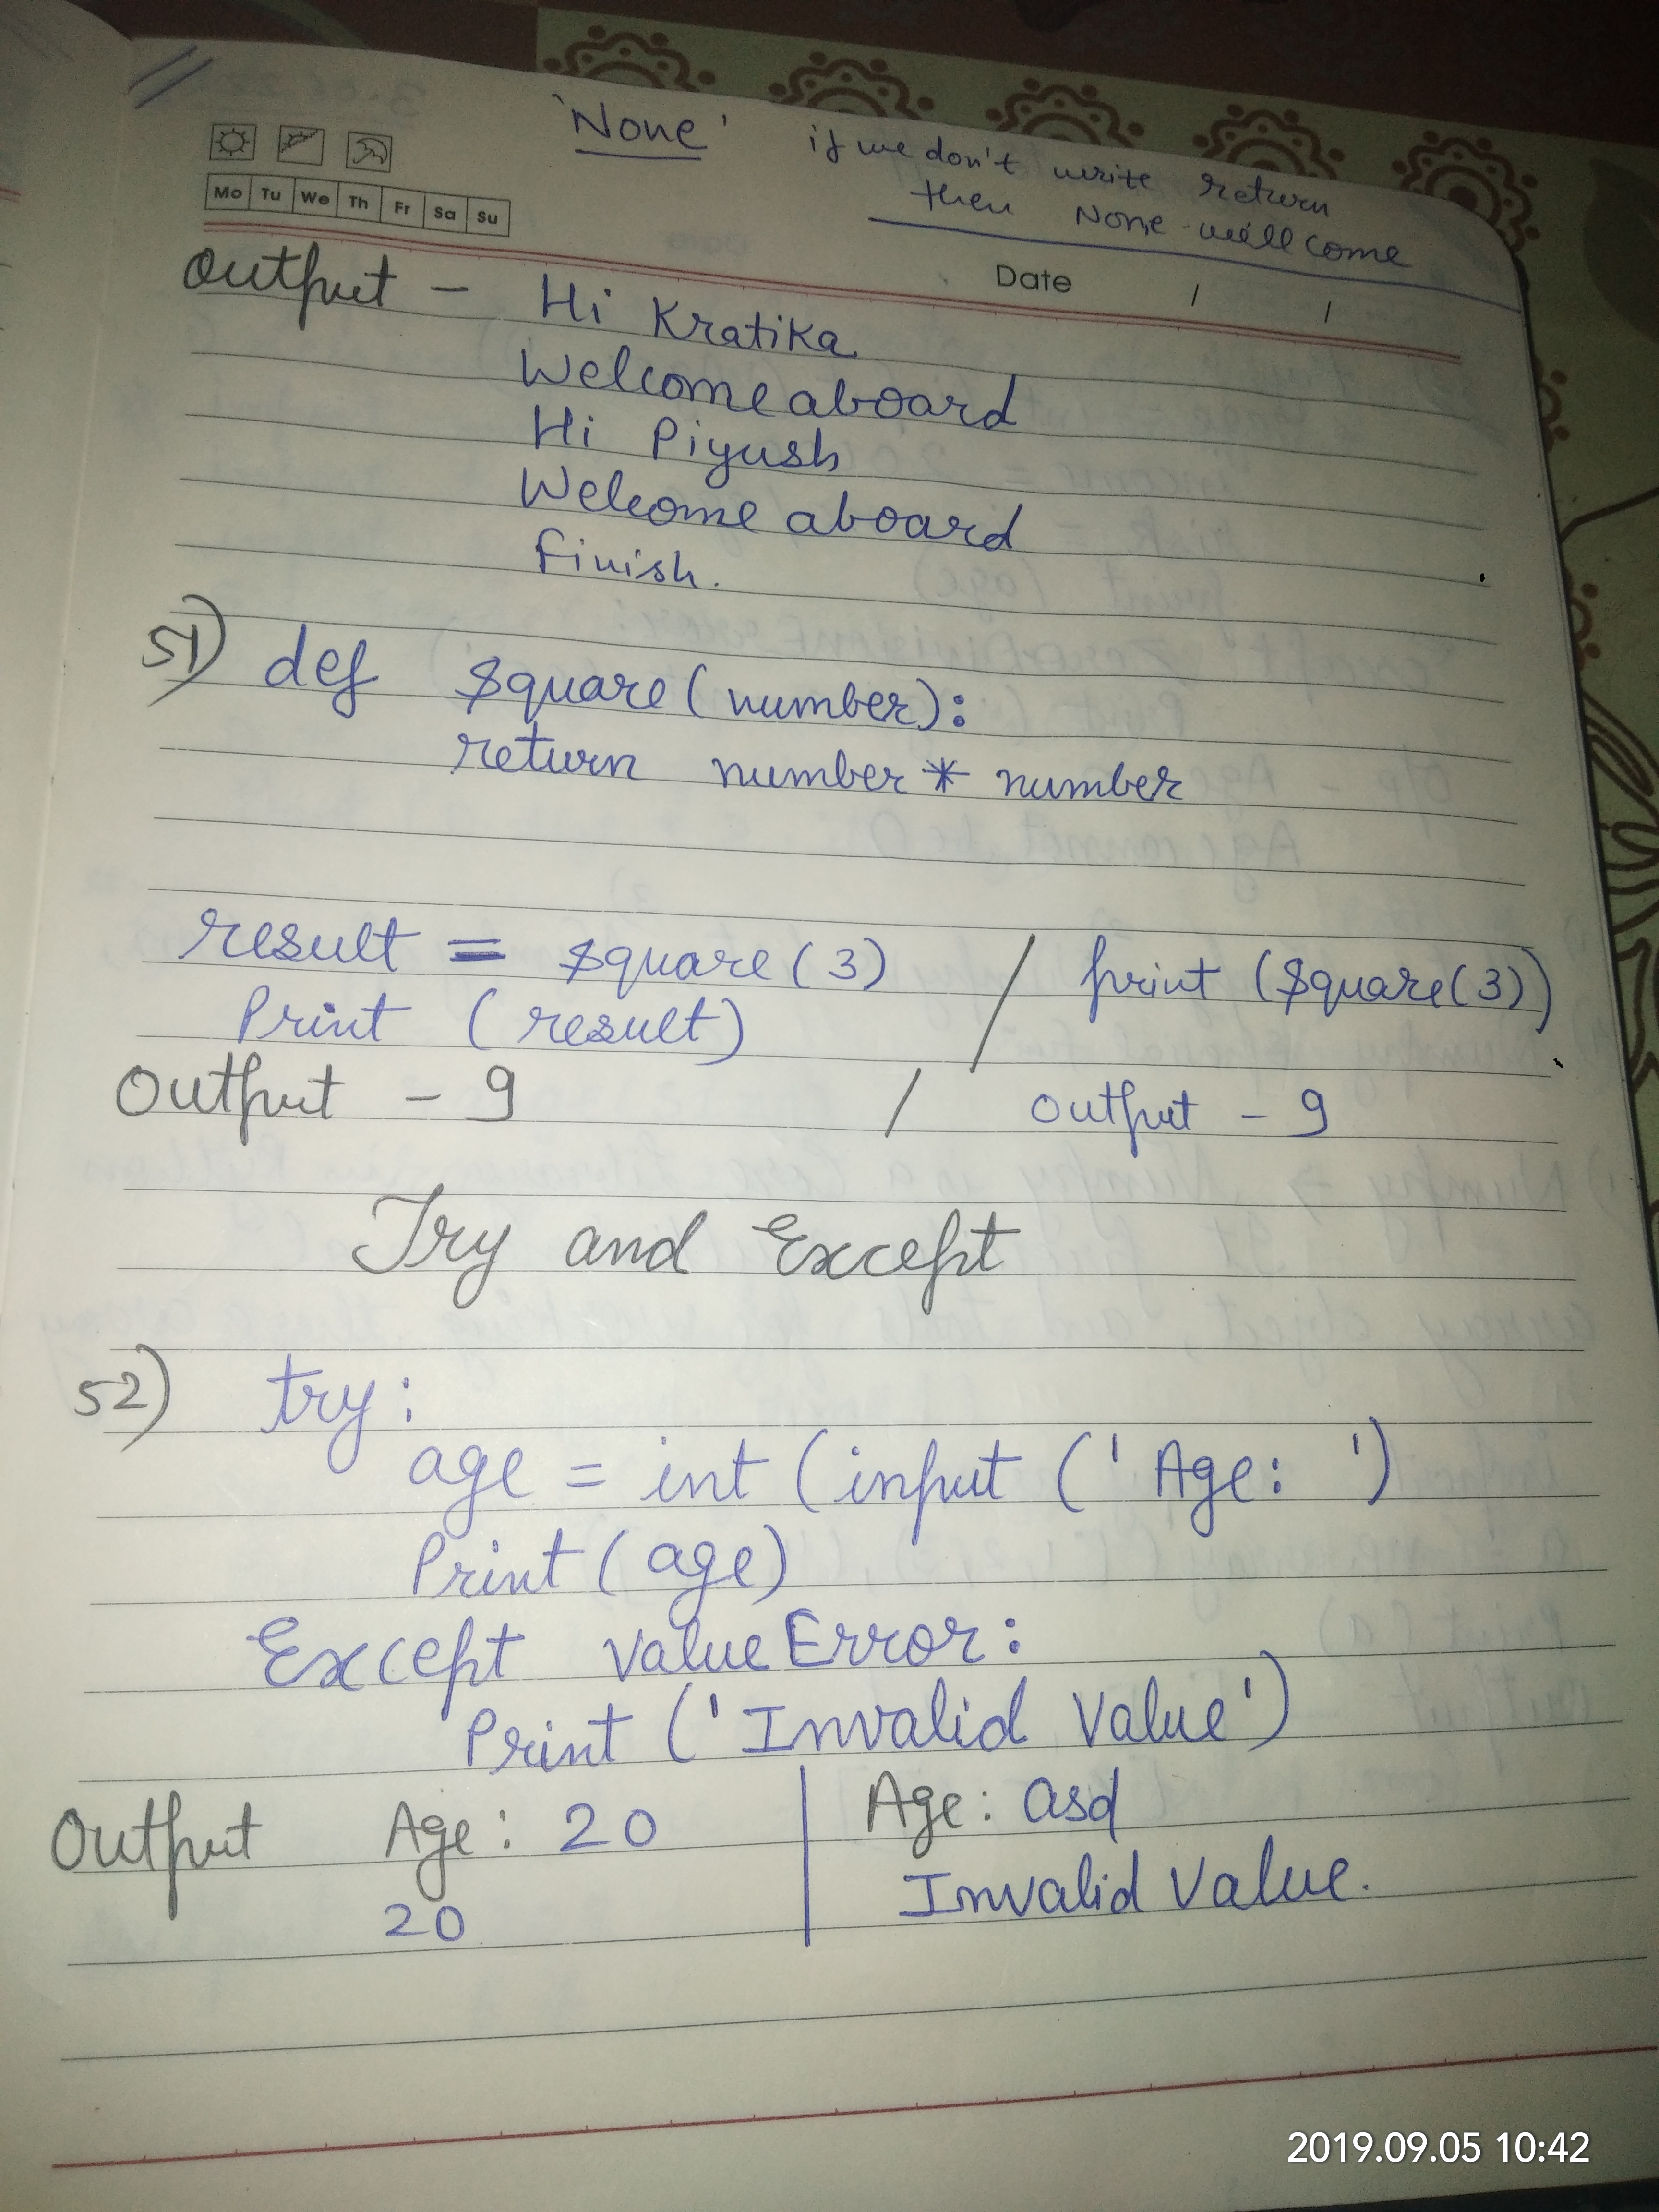 'None' if we don't write return
then None will come
Mo Tu We Th Fr Sa Su
Date / /
Output - Hi Kratika
Welcome aboard
Hi Piyush
Welcome aboard
finish.
51) def square(number):
return number * number
result = square(3) / print (square(3))
Print (result)
Output - 9 / output - 9
Try and Except
52) try:
age = int (input ('Age: ')
Print (age)
Except valueError:
Print ('Invalid Value')
Output Age: 20 | Age: asd
20 | Invalid Value.
2019.09.05 10:42